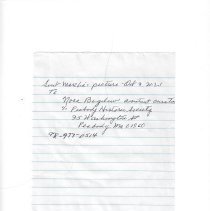 Sent Merchi's picture Oct 3, 2021
To
Nora Bigelow assistant curator
% Peabody Historic Society
35 Washington St
Peabody Ma 01960
978-977-0514